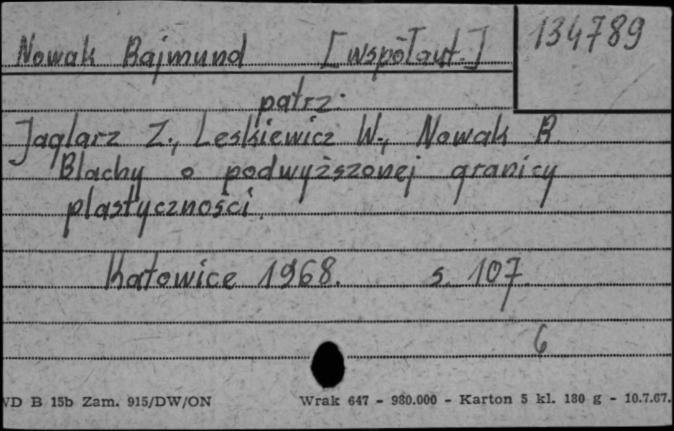 Nowak Rajmund [współaut.] 134789
patrz:
Jaglarz Z., Leskiewicz W., Nowak R.
Blachy o podwyższonej granicy
plastyczności.
Katowice 1968. s. 107.
6
WD B 15b Zam. 915/DW/ON Wrak 647 - 980.000 - Karton 5 kl. 180 g - 10.7.67.